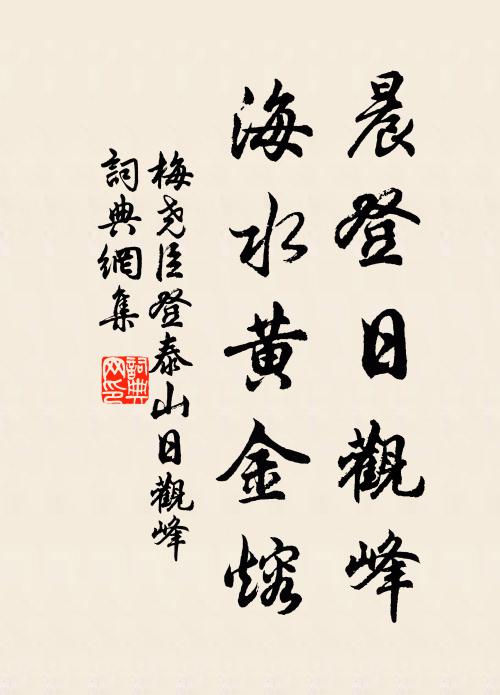 晨登日觀峰
海水黃金熔
梅堯臣登泰山日觀峰
詞典網集
詞典網印